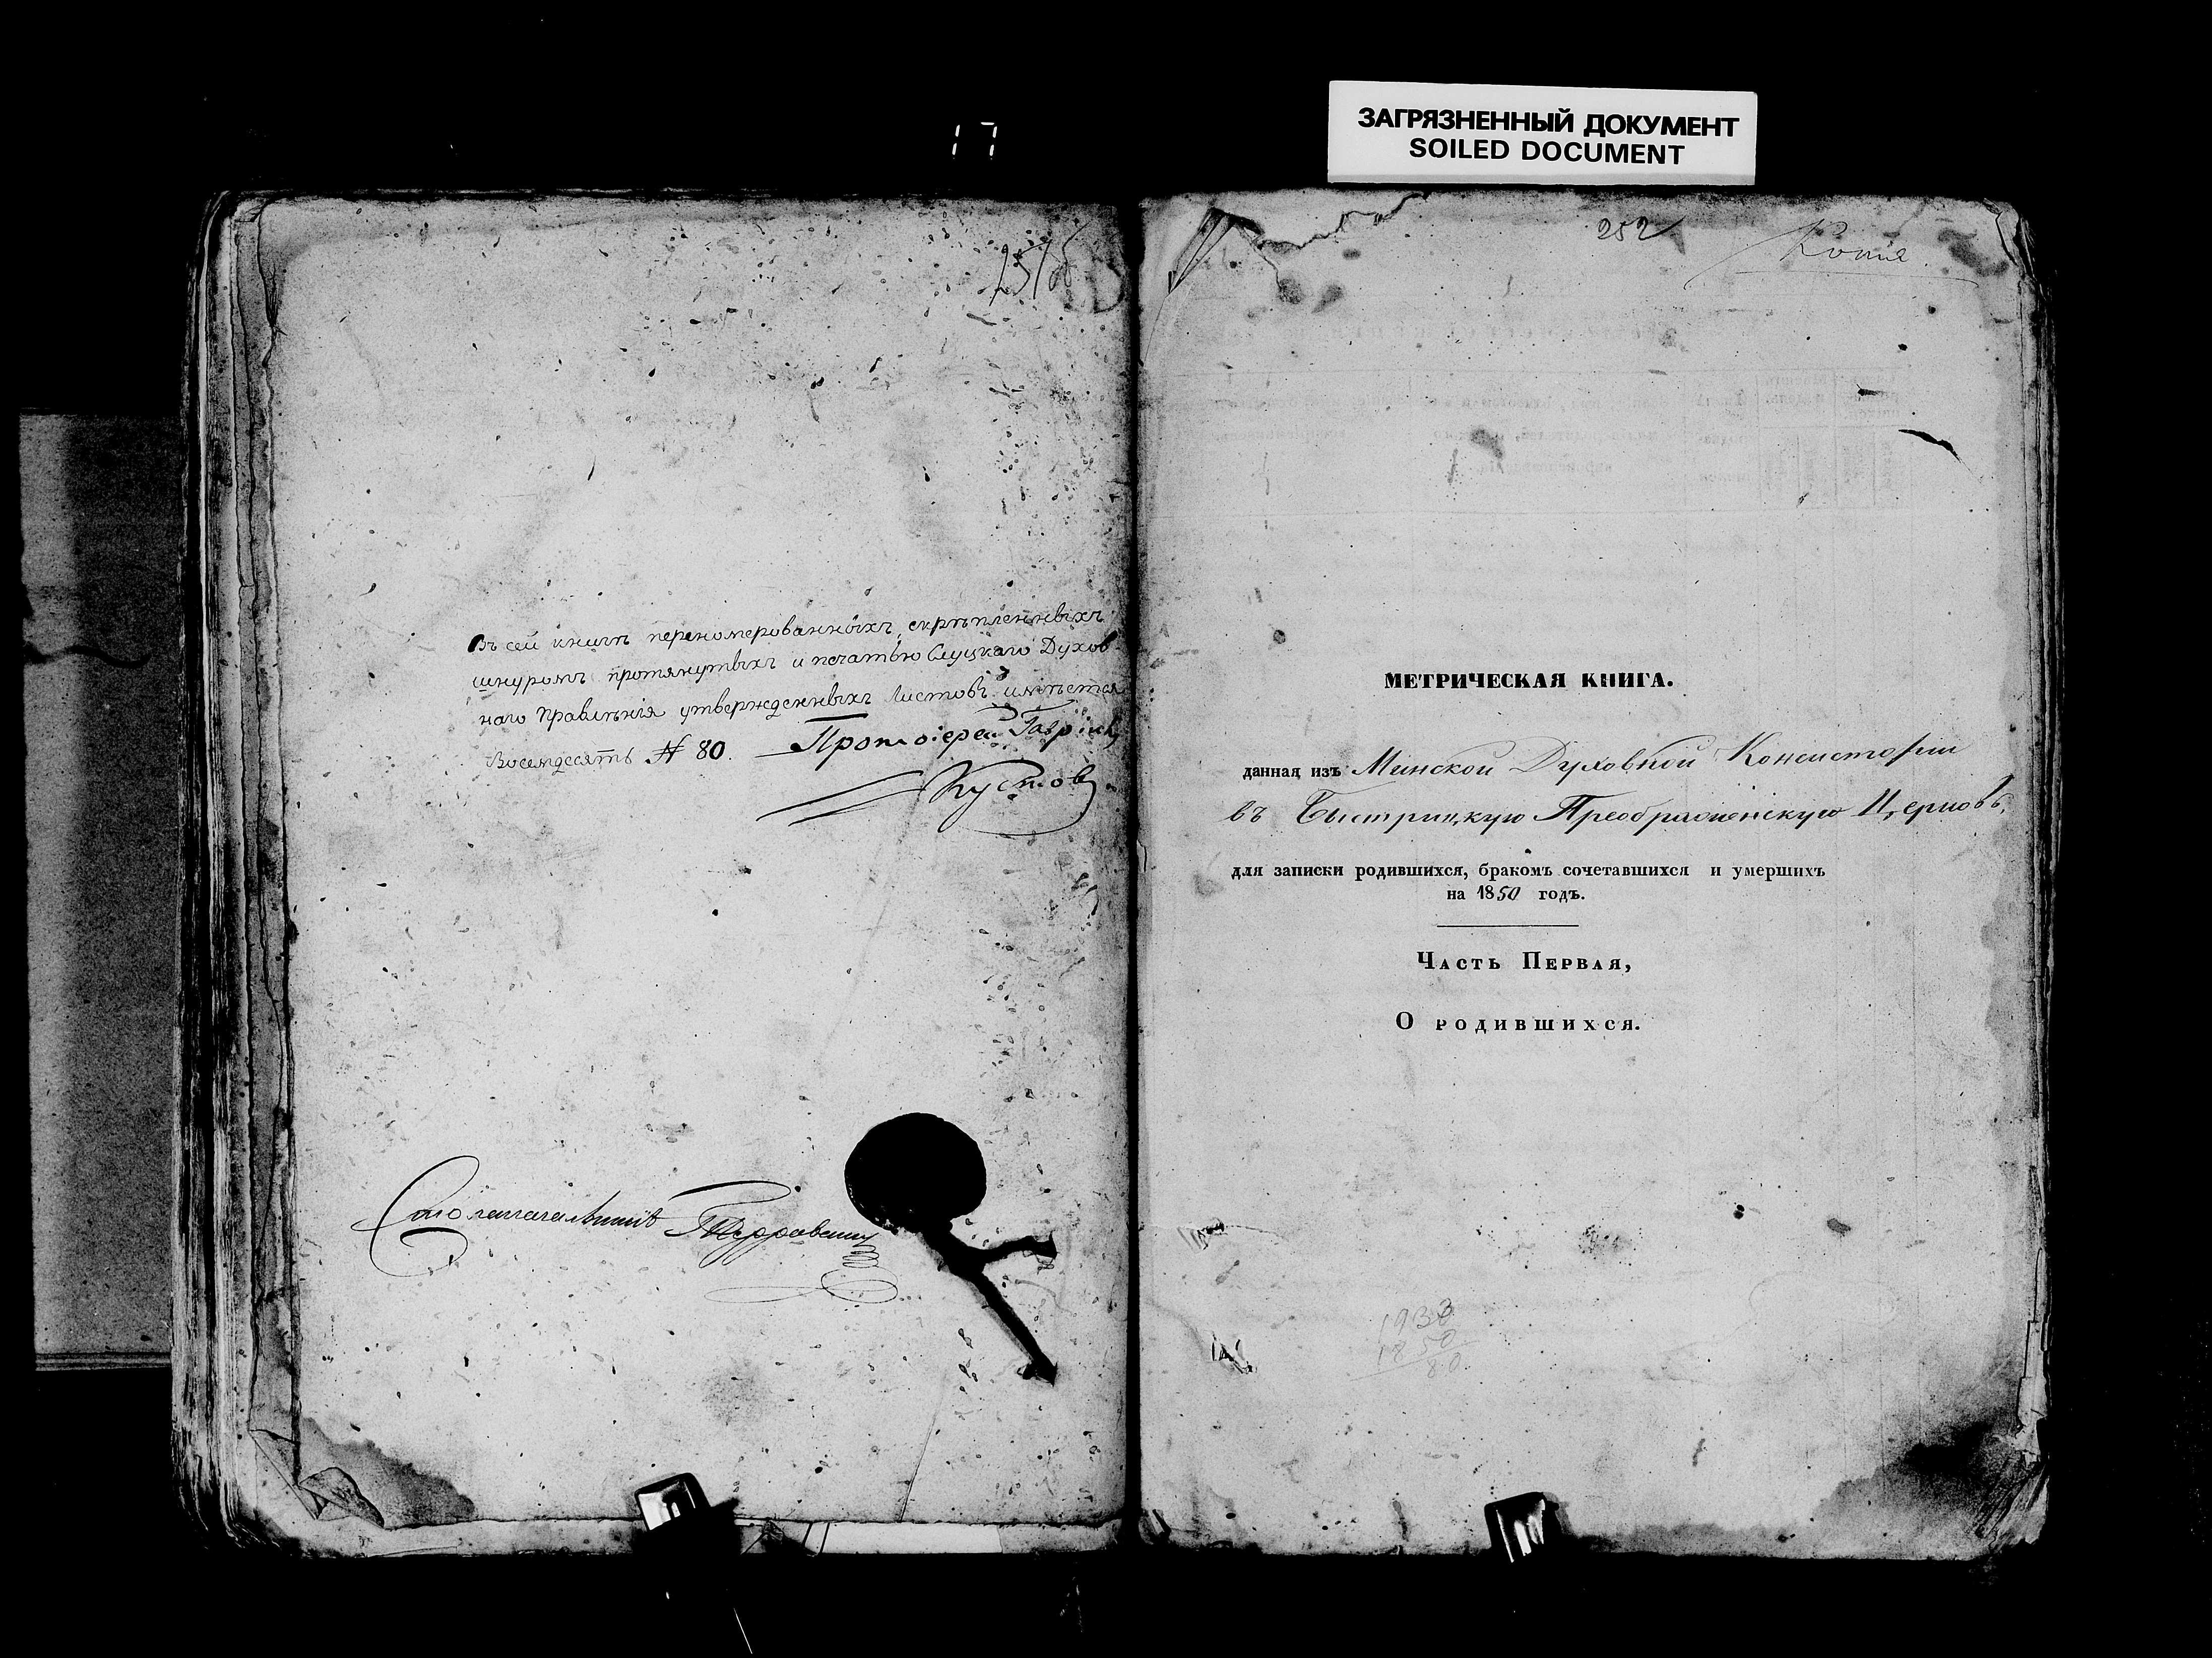 17
ЗАГРЯЗНЕННЫЙ ДОКУМЕНТ
SOILED DOCUMENT
Въ сей книгѣ перенумерованныхъ, скрѣпленныхъ
шнуромъ протянутыхъ и печатью Слуцкаго Духов
наго Правленія утвержденныхъ Листовъ имѣется
Восемдесятъ № 80. Протоіерей Гавріилъ
Кустов
Столоначальникъ
252
Копія
МЕТРИЧЕСКАЯ КНИГА.
данная изъ Минской Духовной Консисторіи
въ Быстрицкую Преображенскую Церковь,
для записки родившихся, бракомъ сочетавшихся и умершихъ
на 1850 годъ.
Часть Первая,
О родившихся.
1933
1850
80